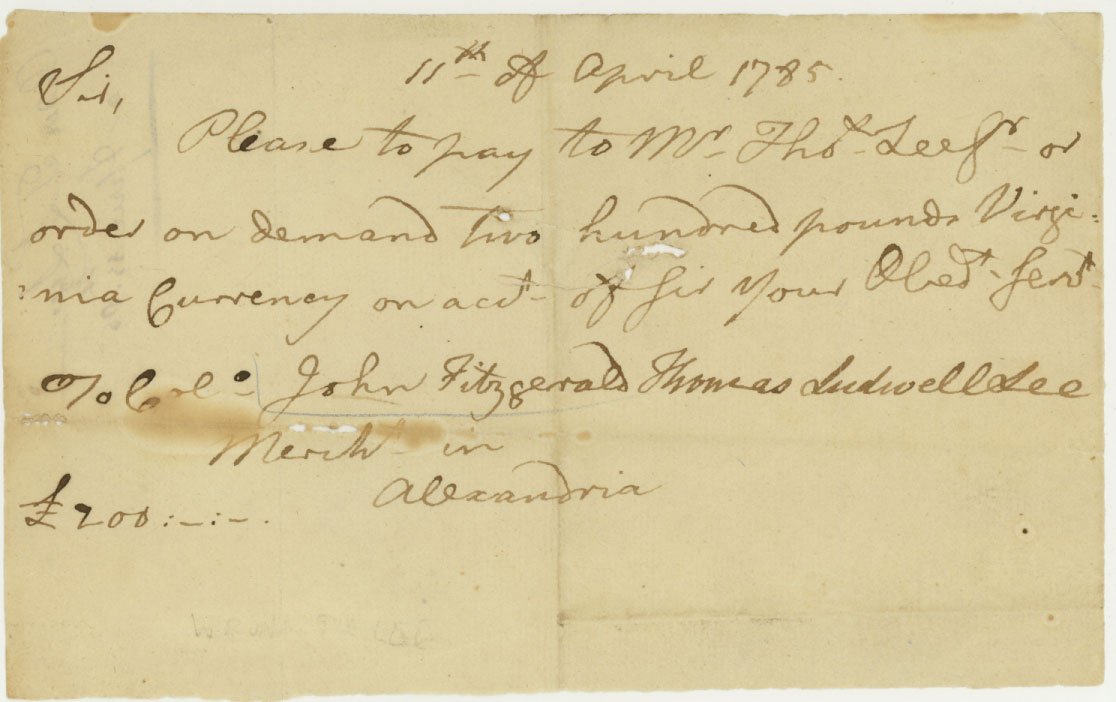 11th Of April 1785.
Sir,
Please to pay to Mr. Thos. Lee Jr. or
order on demand two hundred pounds Virgi:
:nia Currency on acct. of Sir Your Obedt. Servt.
To Colo. John Fitzgerald Thomas Ludwell Lee
Mercht. in
Alexandria
£200:-:-.